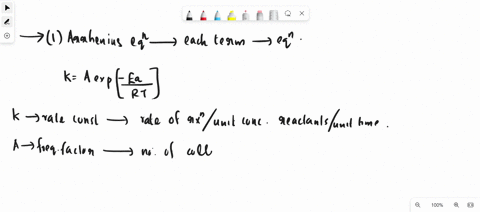 → (1) Arrhenius eqⁿ → each term → eqⁿ.
K = A exp[-Ea/RT]
K → rate const → rate of rxⁿ/unit conc. reactants/unit time.
A → freq. factor → no. of coll
100%